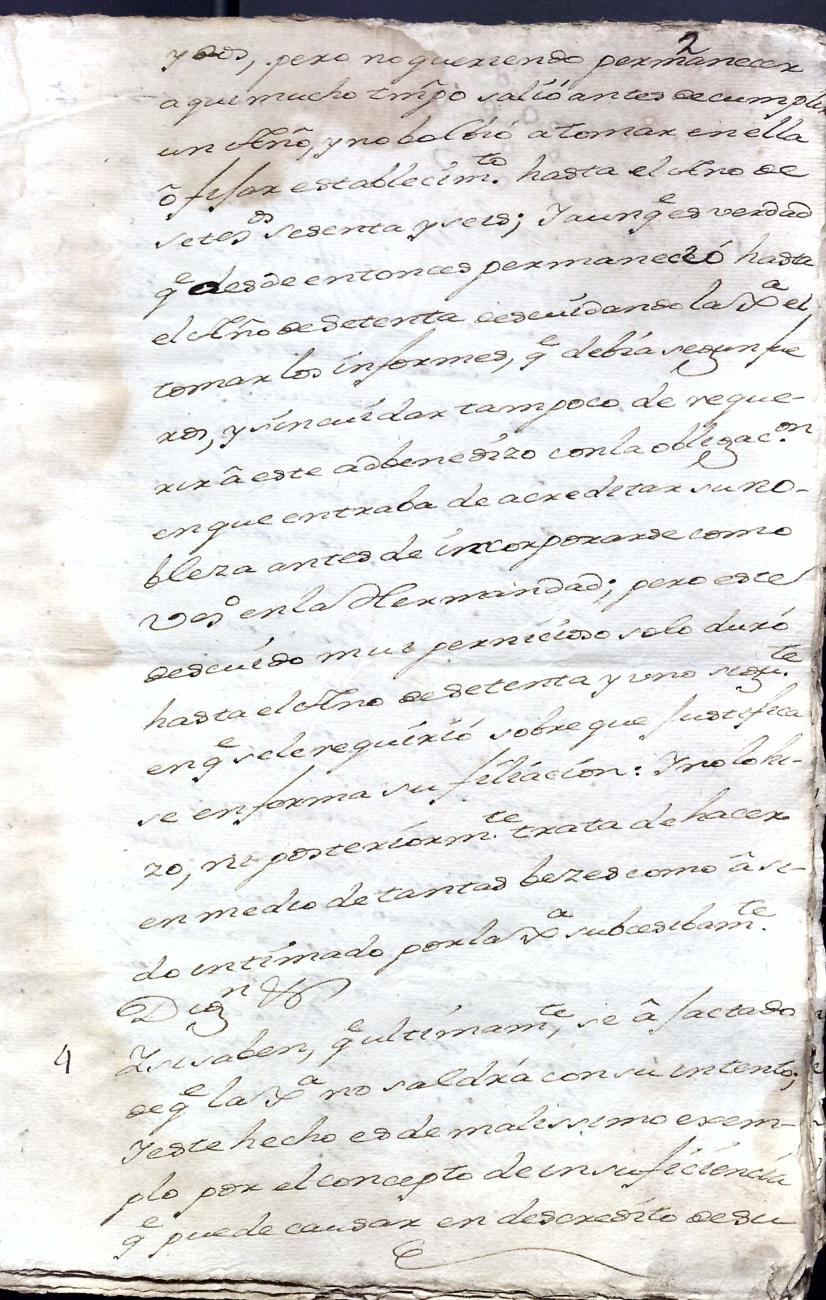 2
y dos, pero no queriendo permanecer
aqui mucho tmpo salió antes de cumplir
un Año, y no bolbió a tomar en ella
ô fijar establecim.to hasta el Año de
setecdos sesenta y seis; Y aunqe es verdad
qe desde entonces permaneció hasta
el Año de setenta descuidando la Va el
tomar los informes, qe debia segun fue
ros, y sin cuidar tampoco de reque-
rir â este adbenedizo con la obligac.on
en que entraba de acreditar su no-
bleza antes de incorporarse como
Veco en la Hermandad; pero este
descuido mui pernicioso solo duró
hasta el Año de setenta y uno sigu.te
en qe se le requirió sobre que justifica
se en forma su filiacion: Y no lo hi-
zo, ni posteriorm.te trata de hacer
en medio de tantas bezes como â si-
do intimado por la Va subcesibam.te
Dign &
4 Y si saben, qe ultimam.te, se â jactado
de qe la Va no saldrá con su intento;
Y este hecho es de malissimo exem-
plo por el concepto de insuficiencia
qe puede causar en descredito de su